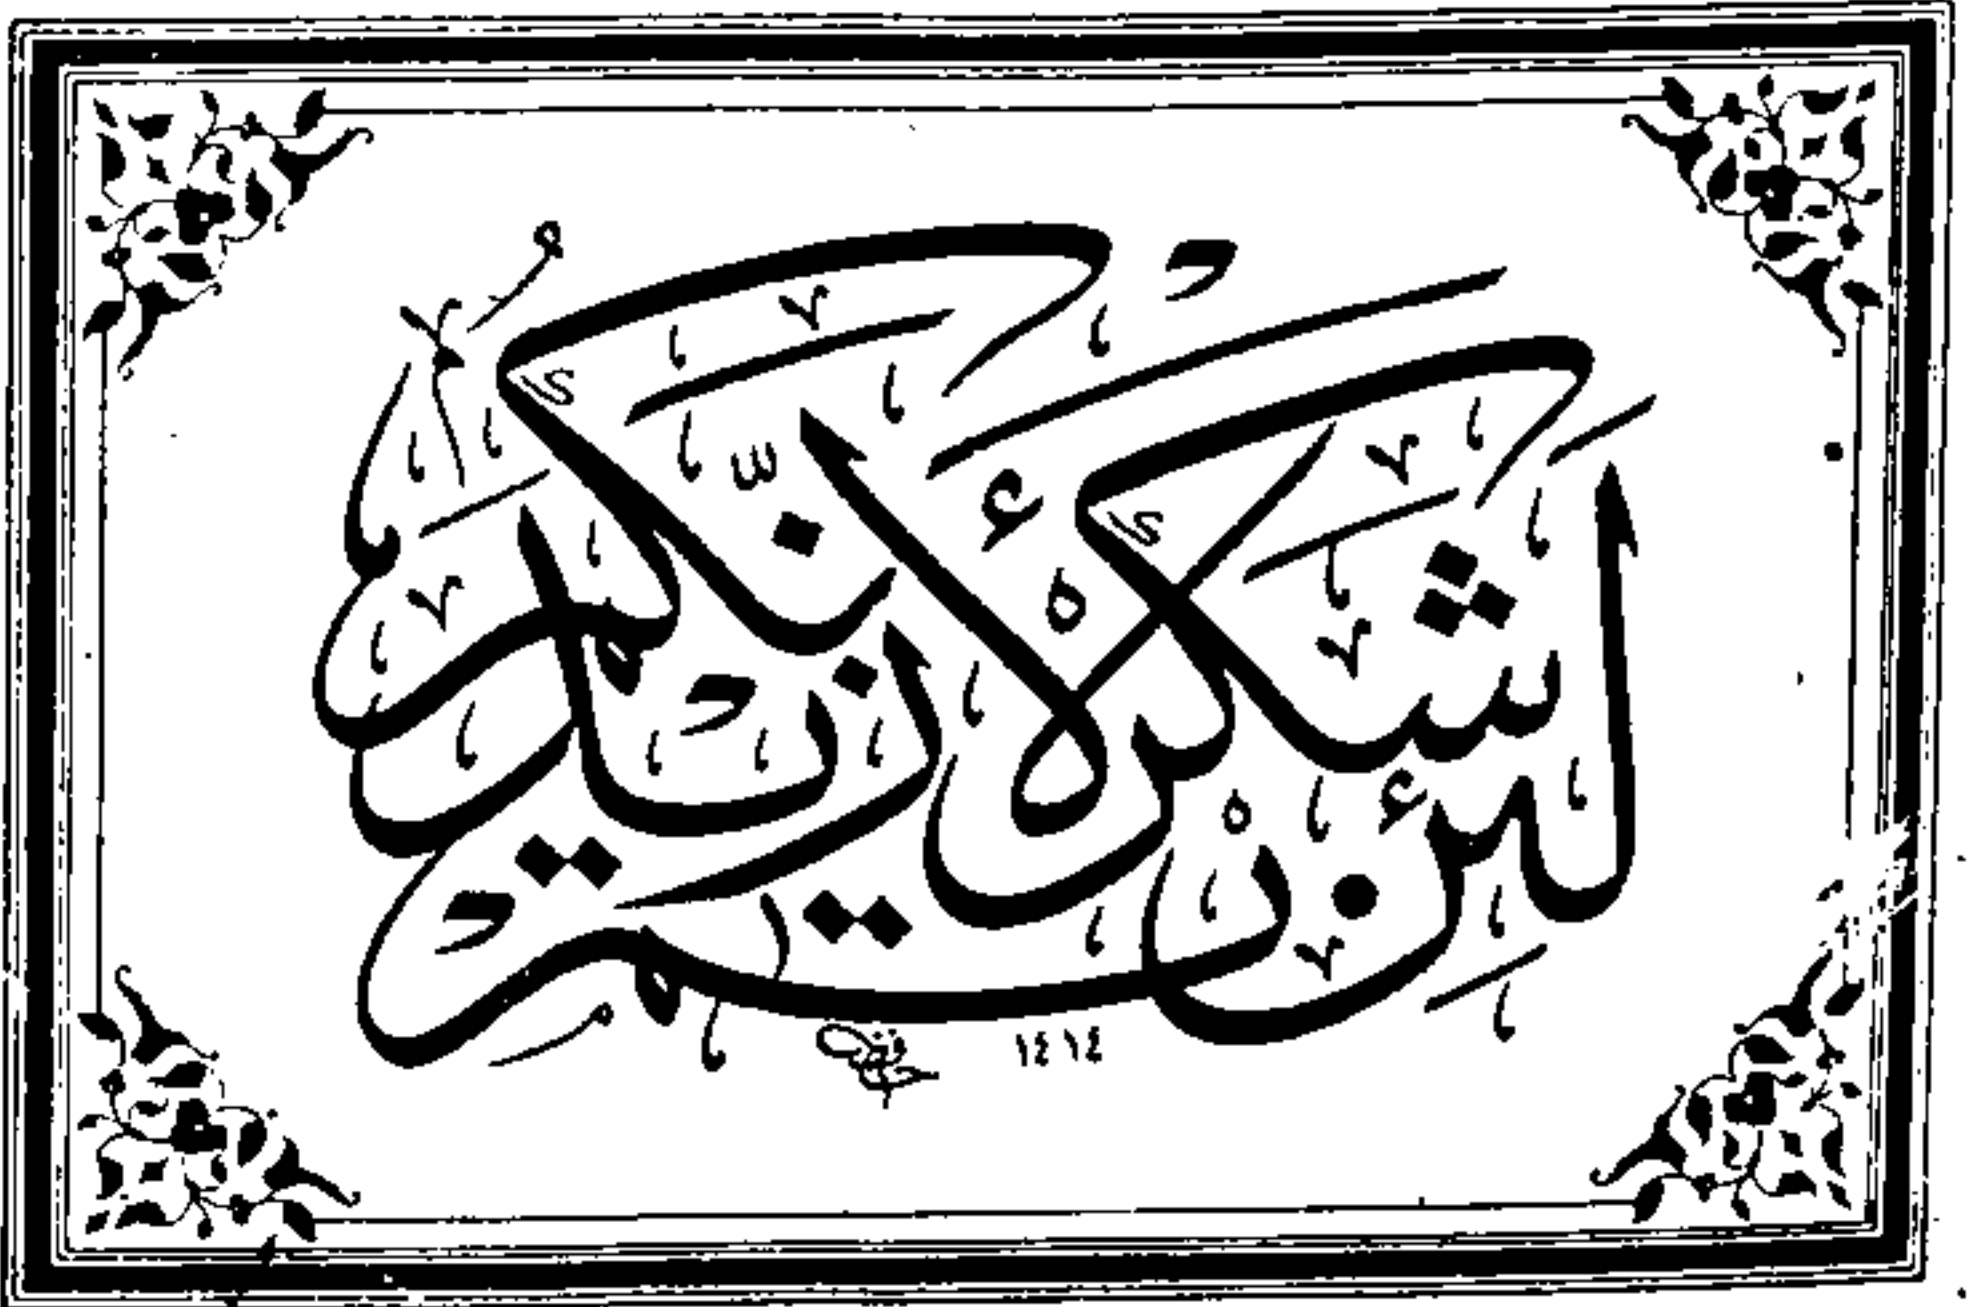 لَئِنْ شَكَرْتُمْ لَأَزِيدَنَّكُمْ
١٤١٤